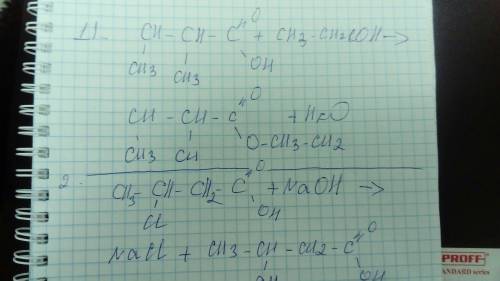 1). CH - CH - C O + CH3 - CH2COH →
CH3 CH3 OH
CH - CH - C O + H2O
CH3 CH O-CH3-CH2
2. CH3 - CH - CH2 - C O + NaOH →
Cl OH
NaCl + CH3 - CH - CH2 - C O
OH OH
PROFF
STANDARD series